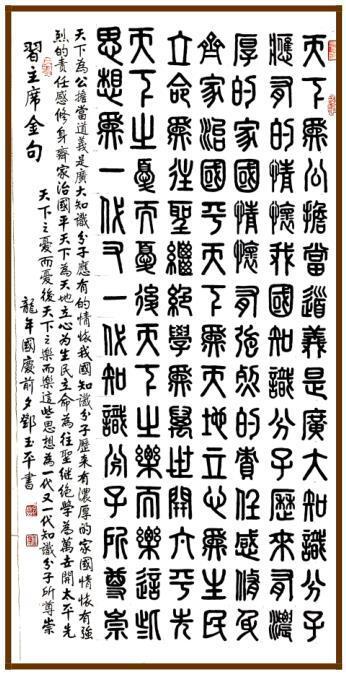 天下為公擔當道義是廣大知識分子
應有的情懷我國知識分子歷來有濃
厚的家國情懷有強烈的責任感修身
齊家治國平天下為天地立心為生民
立命為往聖繼絕學為萬世開太平先
天下之憂而憂後天下之樂而樂這些
思想為一代又一代知識分子所尊崇
天下為公擔當道義是廣大知識分子應有的情懷我國知識分子歷來有濃厚的家國情懷有強
烈的責任感修身齊家治國平天下為天地立心為生民立命為往聖继絕學為萬世開太平先
天下之憂而憂後天下之樂而樂這些思想為一代又一代知識分子所尊崇
習主席金句
龍年國慶前夕鄧玉平書